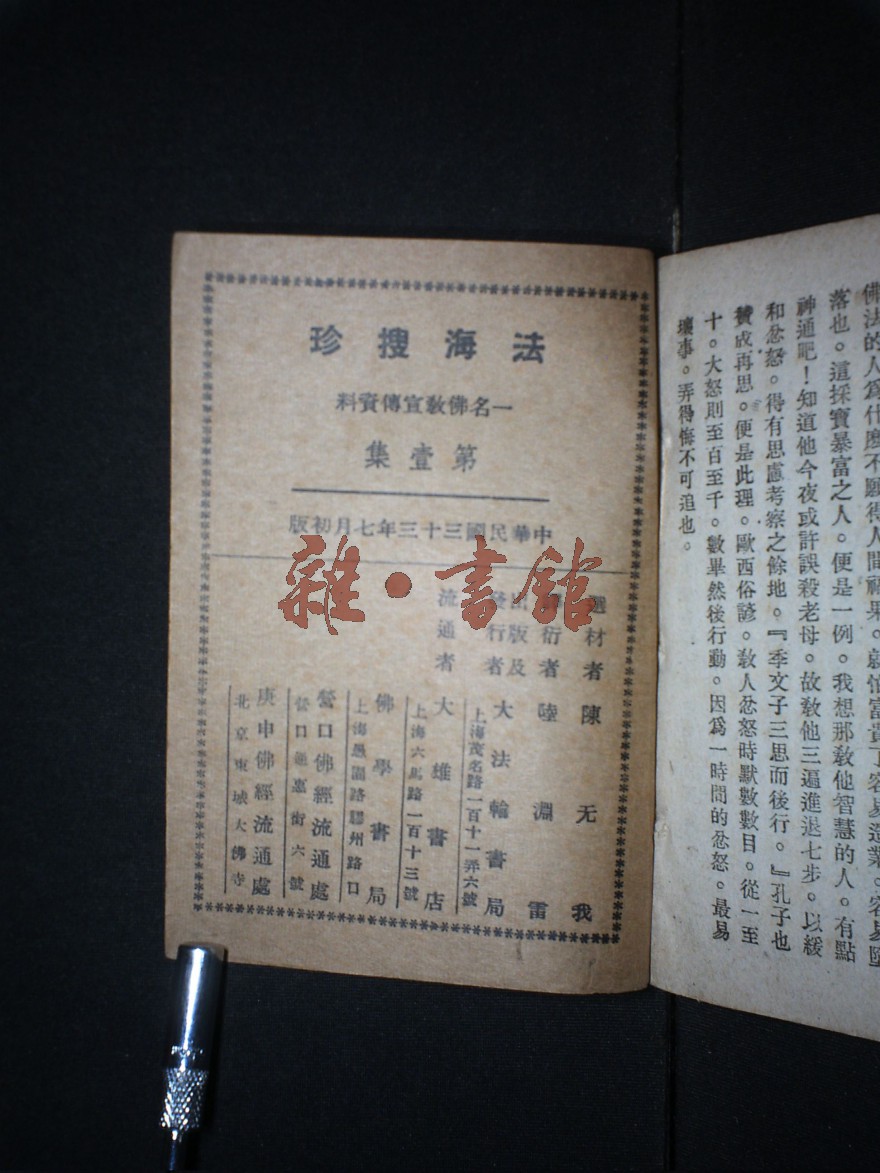 佛法的人爲什麽不願得人間福果。就怕富貴了容易造業。容易墮
落也。這採寶暴富之人。便是一例。我想那敎他智慧的人。有點
神通吧！知道他今夜或許誤殺老母。故敎他三遍進退七步。以緩
和忿怒。得有思慮考察之餘地。『季文子三思而後行。』孔子也
贊成再思。便是此理。歐西俗諺。敎人忿怒時默數數目。從一至
十。大怒則至百至千。數畢然後行動。因爲一時間的忿怒。最易
壞事。弄得悔不可追也。
法海搜珍
一名佛敎宣傳資料
第壹集
中華民國三十三年七月初版
選材者 陳无我
衍者 陸淵雷
出版及
發行者 大法輪書局
上海茂名路一百十一弄六號
流通者 大雄書店
上海六馬路一百十三號
佛學書局
上海愚園路膠州路口
營口佛經流通處
營口 街六號
庚申佛經流通處
北京東城大佛寺
雜·書館